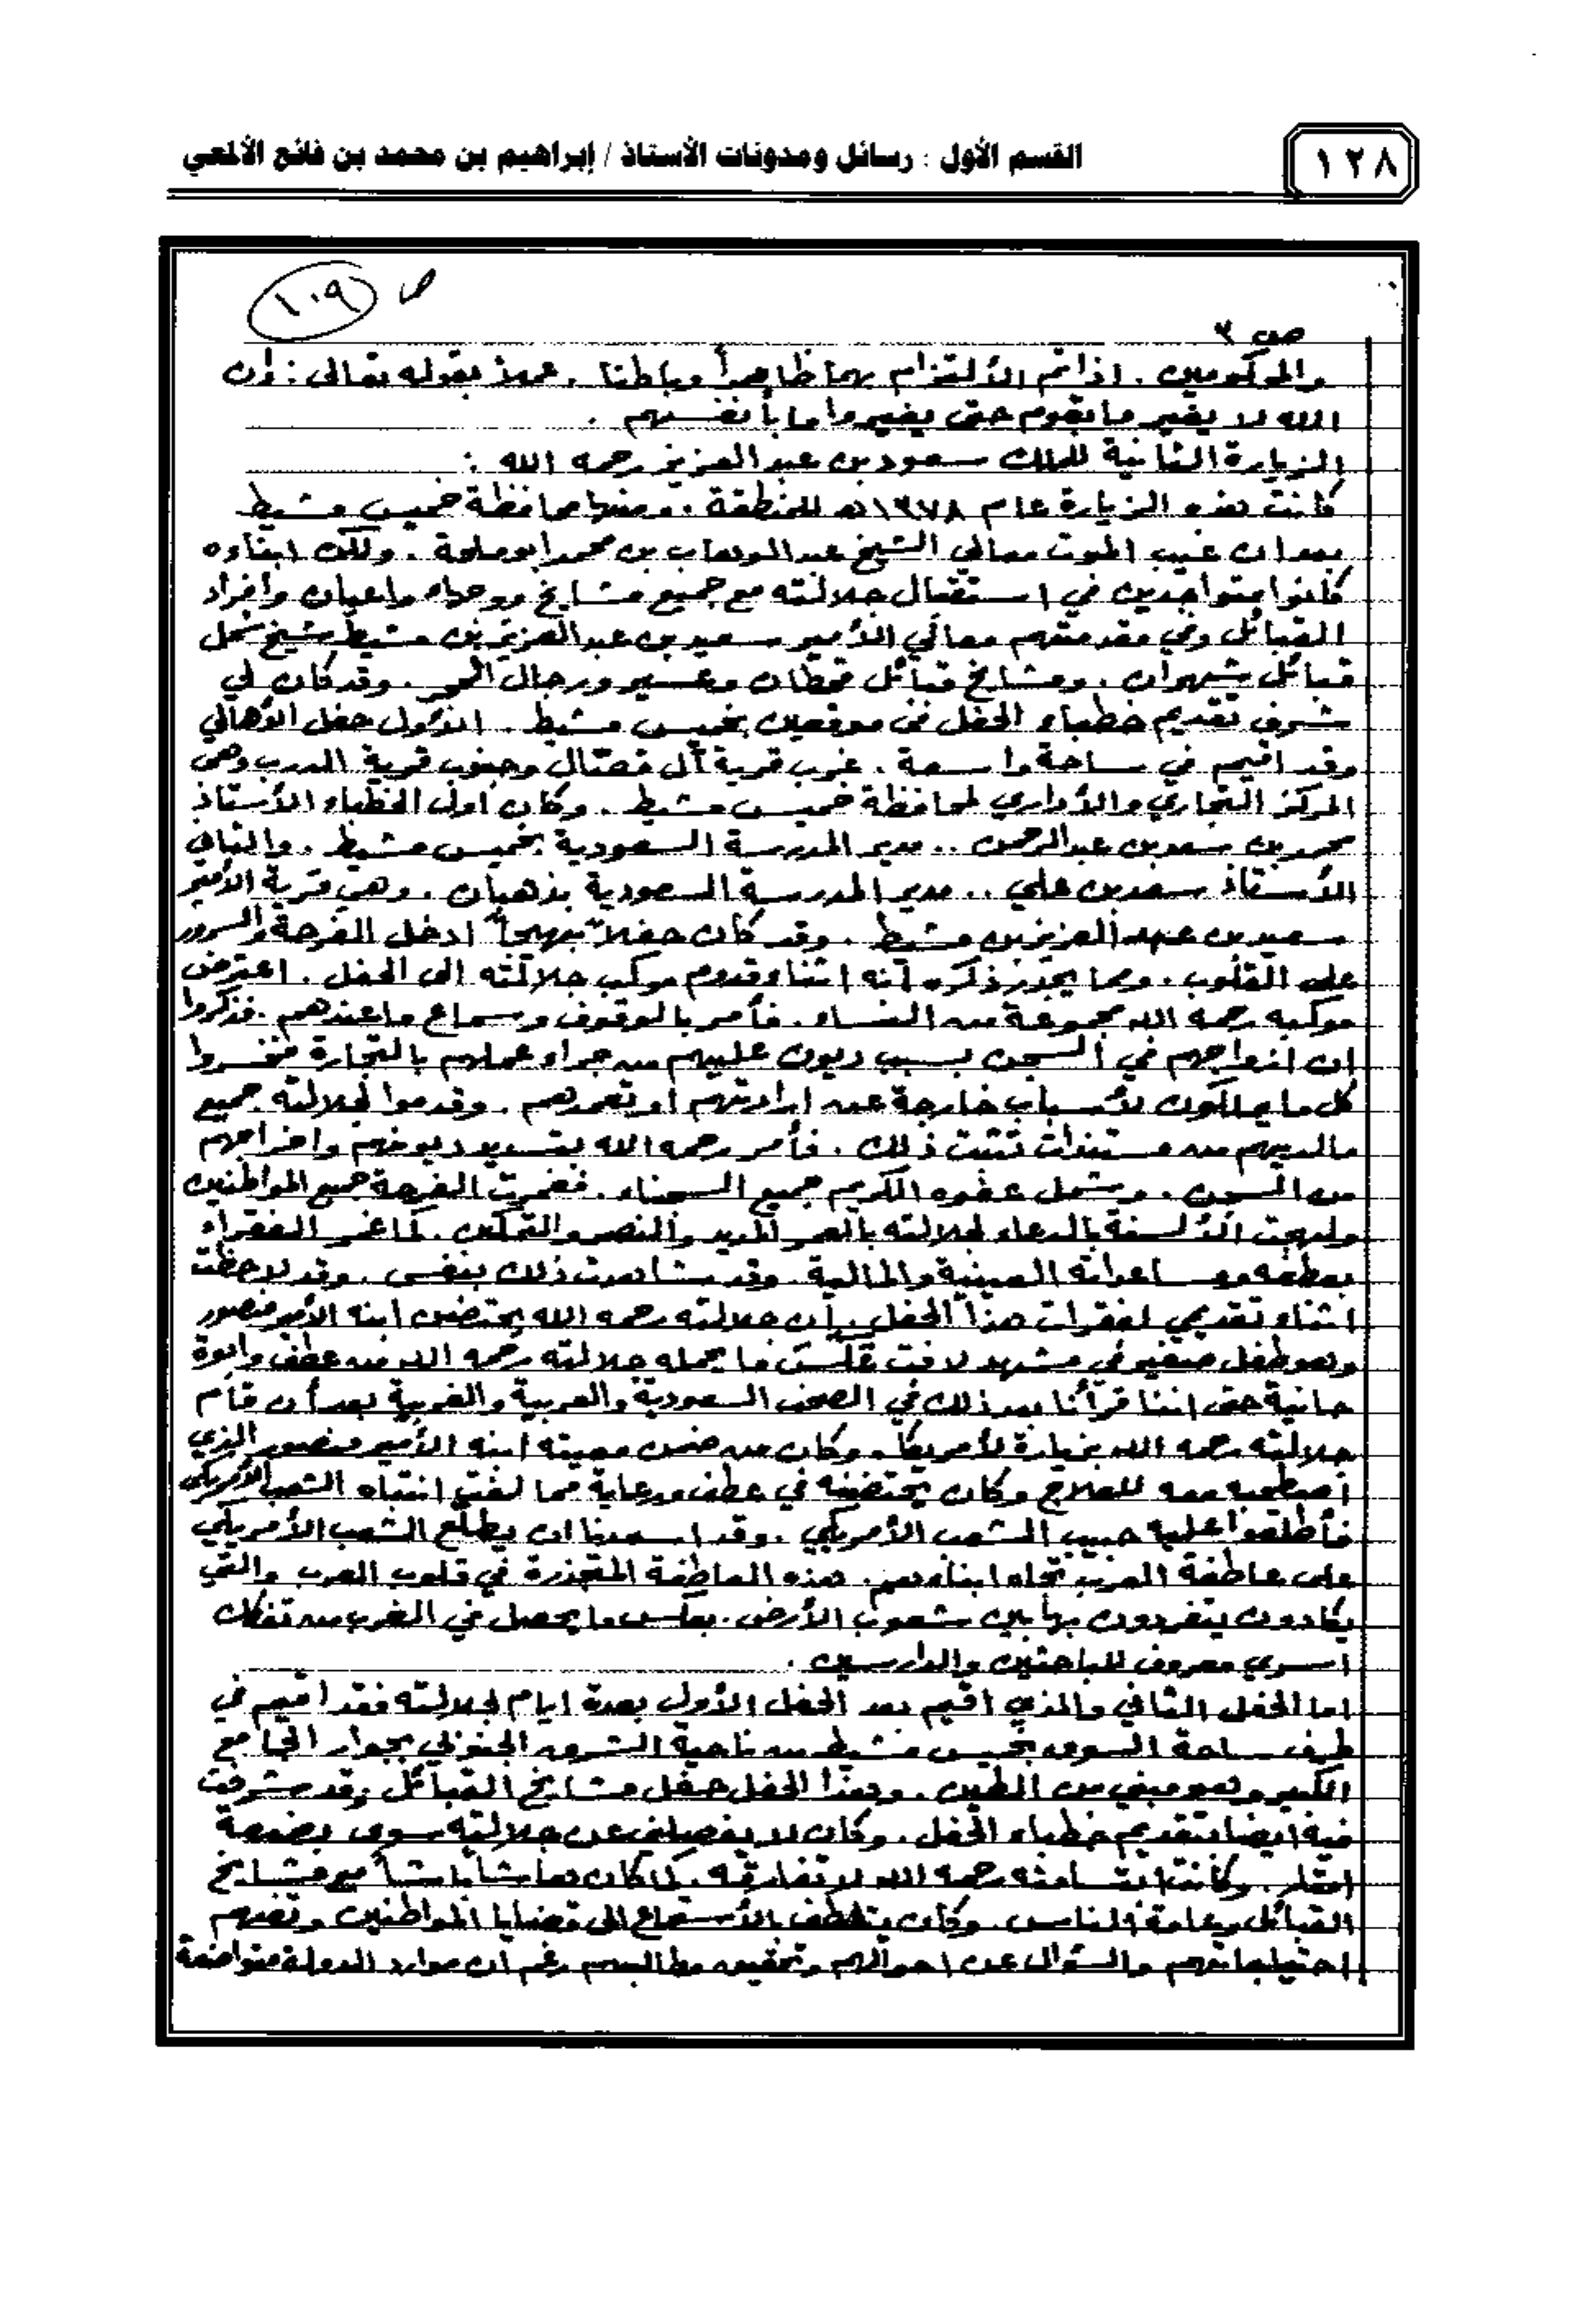 ١٢٨
القسم الأول : رسائل ومدونات الأستاذ / إبراهيم بن محمد بن فائع الألمعي
ص ١٠٩
ص ٢
والمحكومين . اذا تم الألتزام بهما ظاهراً وباطنا . عملاً بقوله تعالى : إن
الله لا يغير ما بقوم حتى يغيروا ما بأنفسهم .
الزيارة الثانية للملك سعود بن عبد العزيز رحمه الله :
كانت هذه الزيارة عام ١٣٧٨هـ للمنطقة . ومنها محافظة خميس مشيط
بعد ان غيب الموت معالي الشيخ عبد الوهاب بن محمد ابو ملحة . ولكن ابناءه
كانوا متواجدين في استقبال جلالته مع جميع مشايخ ووجهاء واعيان وافراد
القبائل وفي مقدمتهم معالي الأمير سعيد بن عبد العزيز بن مشيط شيخ شمل
قبائل شهران . ومشايخ قبائل قحطان وعسير ورجال الحجر . وقد كان لي
شرف تقديم خطباء الحفل في موقعين بخميس مشيط . الأول حفل الأهالي
وقد اقيم في ساحة واسعة . غرب قرية آل قصّال وجنوب قرية الدرب وهي
المركز التجاري والأداري لمحافظة خميس مشيط . وكان اول الخطباء الأستاذ
محمد بن سعد بن عبد الرحمن .. مدير المدرسة السعودية بخميس مشيط . والثاني
الأستاذ سعد بن علي .. مدير المدرسة السعودية بذهبان . وهي قرية الأمير
سعيد بن عبد العزيز بن مشيط . وقد كان حفلاً بهيجاً ادخل الفرحة والسرور
على القلوب . ومما يجدر ذكره أنه اثناء قدوم موكب جلالته الى الحفل . اعترض
موكبه رحمه الله مجموعة من النساء . فأمر بالوقوف وسماع ما عندهم . فذكروا
ان ازواجهم في السجن بسبب ديون عليهم من جراء عملهم بالتجارة فخسروا
كل ما يملكون لأسباب خارجة عن ارادتهم او تعمدهم . وقدموا لجلالته جميع
مالديهم من مستندات تثبت ذلك . فأمر رحمه الله بتسديد ديونهم واخراجهم
من السجن . وشمل عفوه الكريم جميع السجناء . فغمرت الفرحة جميع المواطنين
ولهجت الألسنة بالدعاء لجلالته بالعمر المديد والنصر والتمكين . كما غمر الفقراء
بعطفه ومساعداته العينية والمالية . وقد شاهدت ذلك بنفسي . وقد لاحظت
اثناء تقديمي لفقرات هذا الحفل . ان جلالته رحمه الله يحتضن ابنه الأمير منصور
وهو طفل صغير في مشهد لافت عكس ما يحمله جلالته رحمه الله من عطف وابوة
حانية حتى اننا قرأنا بعد ذلك في الصحف السعودية والعربية والغربية بعد أن قام
جلالته رحمه الله بزيارة لأمريكا . وكان من ضمن معيته ابنه الأمير منصور الذي
اصطحبه معه للعلاج وكان يحتضنه في عطف ورعاية مما لفت انتباه الشعب الأمريكي
فأطلقوا عليه حبيب الشعب الأمريكي . وقد اسعدنا ان يطلع الشعب الأمريكي
على عاطفة العرب تجاه ابناءهم . هذه العاطفة المتجذرة في قلوب العرب والتي
يكادون يتفردون بها بين شعوب الأرض . بعكس ما يحصل في الغرب من تفكك
اسري معروف للباحثين والدارسين .
اما الحفل الثاني والذي اقيم بعد الحفل الأول بعدة ايام لجلالته فقد اقيم في
طرف ساحة السوق بخميس مشيط من ناحية الشرق الجنوبي بجوار الجامع
الكبير وهو مبني من الطين . وهذا الحفل حفل مشايخ القبائل . وقد تشرفت
فيه ايضا بتقديم خطباء الحفل . وكان لا يفصلني عن جلالته سوى بضعة
امتار . وكانت ابتسامته رحمه الله لا تفارقه . كما كان بشأ مع مشايخ
القبائل وعامة الناس . وكان يتلطف بالأستماع الى قضايا المواطنين وتفهم
احتياجاتهم والسؤال عن احوالهم وتحقيق مطالبهم رغم أن موارد الدولة متواضعة